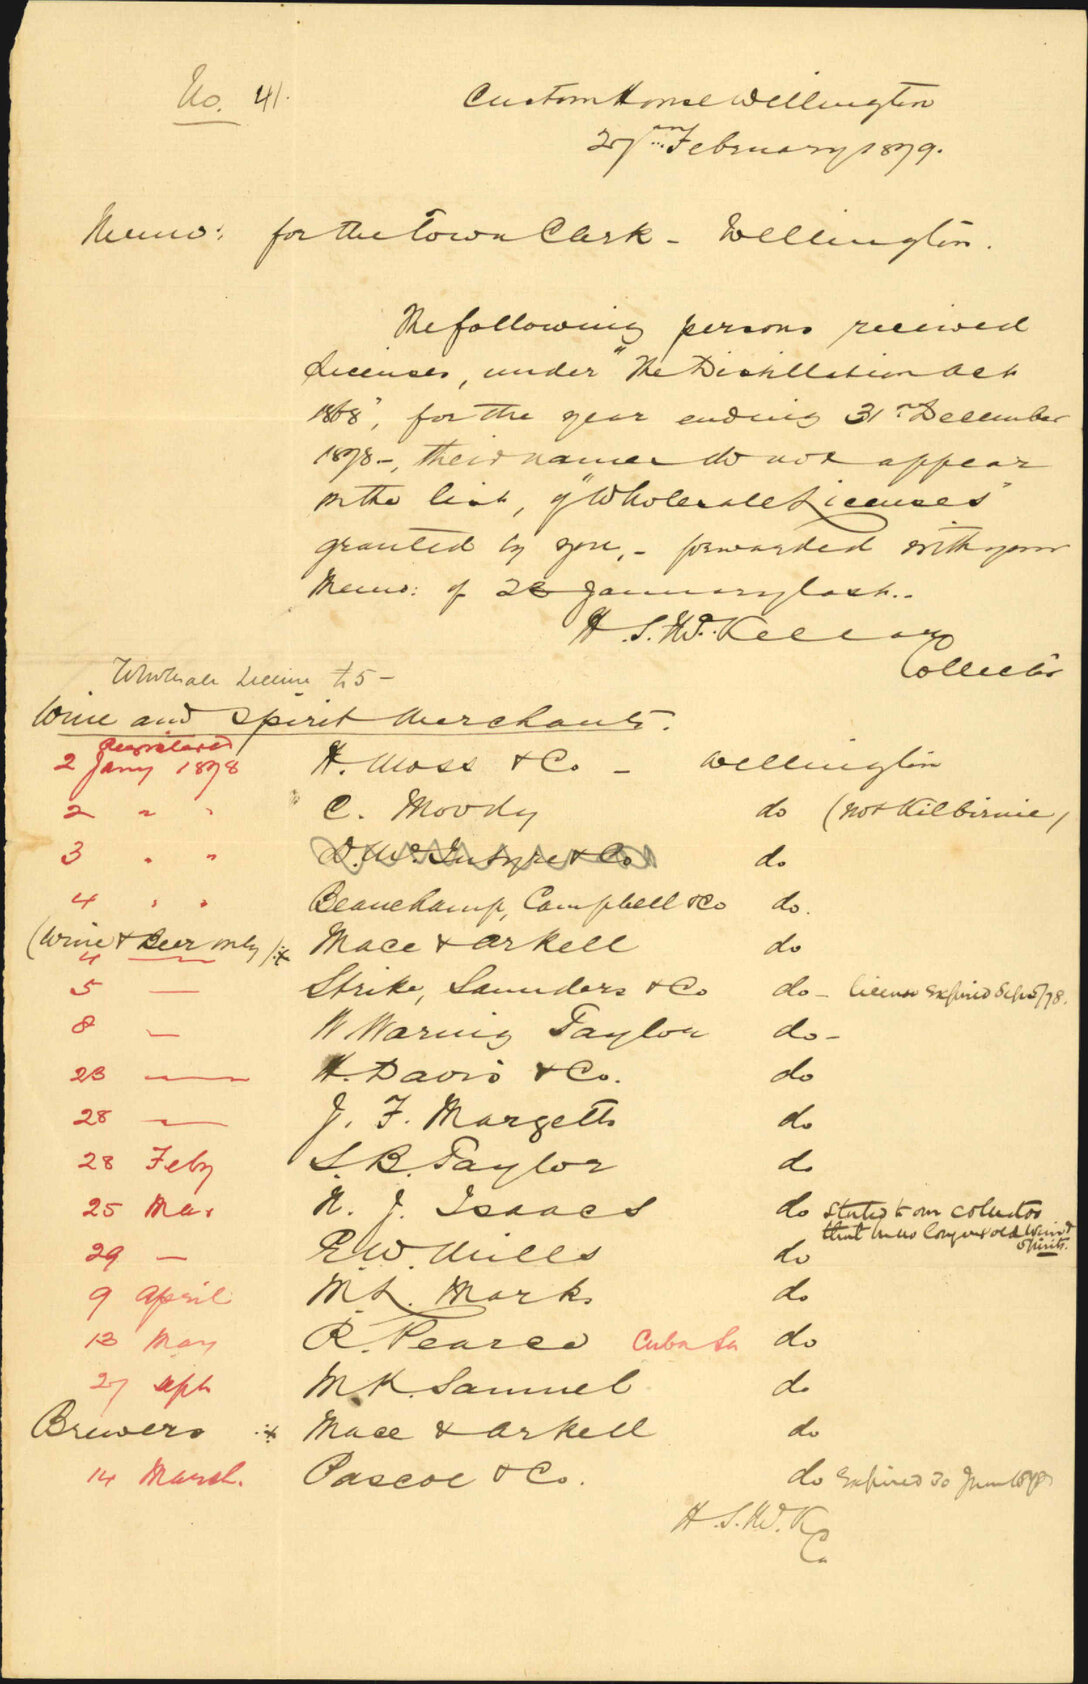 No. 41.
Custom House Wellington
27th February 1879.
Memo: for the Town Clerk - Wellington.
The following persons received
Licenses, under "The Distillation Act
1868", for the year ending 31st December
1878 -, their names do not appear
in the list, of "Wholesale Licenses"
granted by you, - forwarded with your
Memo: of 28 January last..
H. S. McKellar
Collector
Wholesale License £5 -
Wine and Spirit Merchants.
Registered
2 Jany 1878 H. Moss & Co - Wellington
2 " " C. Moody do (not Kilbirnie)
3 " " D. McIntyre & Co do
4 " " Beauchamp, Campbell & Co do.
(Wine & Beer only) * Mace & Arkell do
4 —
5 — Strike, Saunders & Co do - license expired Sep 5/78.
8 — W Waring Taylor do -
23 — H. Davis & Co. do
28 — J. F. Margetts do
28 Feby S. B. Taylor do
25 Mar N. J. Isaacs do Stated to our collector
that he no longer sold Wine &
Spirits.
29 — E. W. Mills do
9 April M. L. Marks do
13 May R. Pearce Cuba St do
27 Sept M K. Samuel do
Brewers * Mace & Arkell do
14 March. Pascoe & Co. do Expired 30 June 1878
H. S. McK
Co